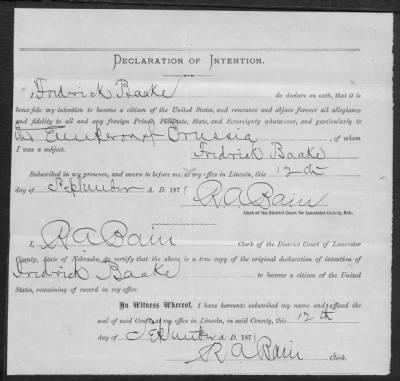 DECLARATION OF INTENTION.
I, Fredrick Baake do declare on oath, that it is
bona fide my intention to become a citizen of the United States, and renounce and abjure forever all allegiance
and fidelity to all and any foreign Prince, Potentate, State, and Sovereignty whatsoever, and particularly to
the Emperor of Prussia, of whom
I was a subject. Fredrick Baake
Subscribed in my presence, and sworn to before me, at my office in Lincoln, this 12th
day of September A. D. 187
R A Bain
Clerk of the District Court for Lancaster County, Neb.
I, R A Bain Clerk of the District Court of Lancaster
County, State of Nebraska, do certify that the above is a true copy of the original declaration of intention of
Fredrick Baake to become a citizen of the United
States, remaining of record in my office.
In Witness Whereof, I have hereunto subscribed my name and affixed the
seal of said Court, at my office in Lincoln, in said County, this 12th
day of September A.D. 187
R A Bain Clerk.